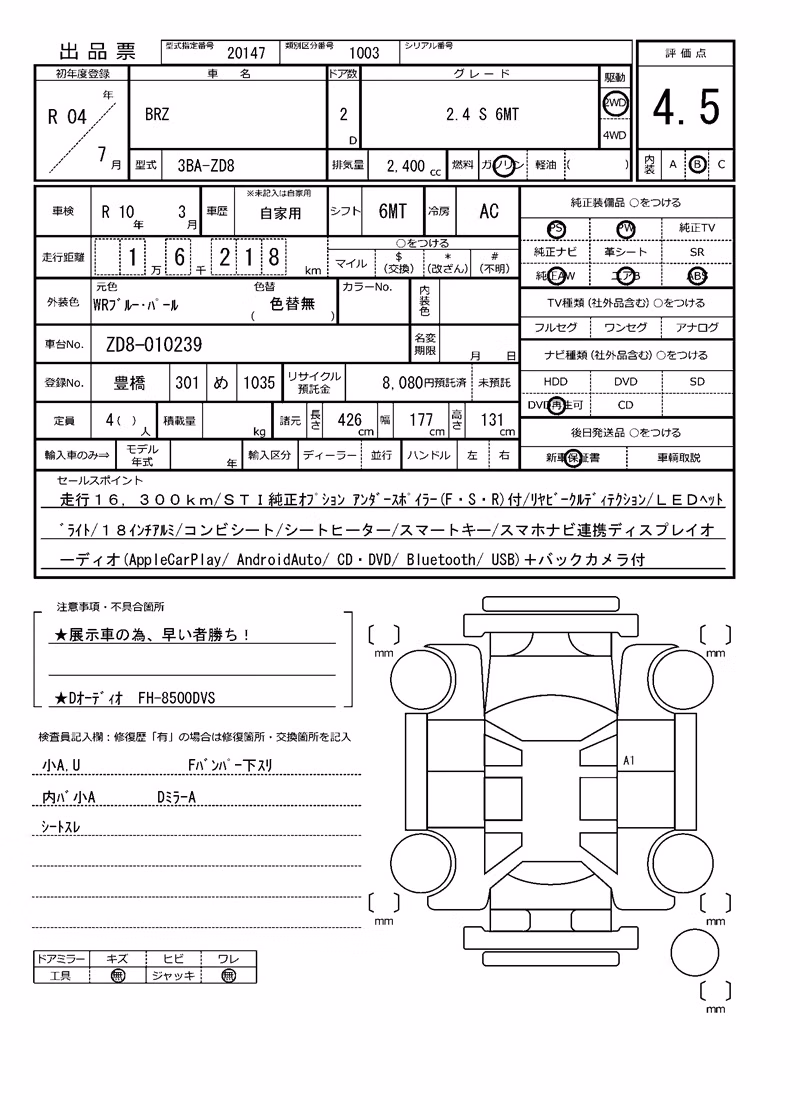 出品票 型式指定番号 20147 類別区分番号 1003 シリアル番号
評価点
4.5
内装 A B C
初年度登録 車名 ドア数 グレード 駆動
R 04 年 7 月 BRZ 2 D 2.4 S 6MT 2WD 4WD
型式 3BA-ZD8 排気量 2,400 cc 燃料 ガソリン 軽油 ( )
車検 R 10 年 3 月 車歴 ※未記入は自家用 自家用 シフト 6MT 冷房 AC
走行距離 1 万 6 千 2 1 8 km ○をつける
マイル $(交換) *(改ざん) #(不明)
外装色 元色 WRブルー・パール 色替 ( 色替無 ) カラーNo. 内装色
車台No. ZD8-010239 名変期限 月 日
登録No. 豊橋 301 め 1035 リサイクル預託金 8,080円預託済 未預託
定員 4( ) 人 積載量 kg 諸元 長さ 426 cm 幅 177 cm 高さ 131 cm
輸入車のみ⇒ モデル年式 年 輸入区分 ディーラー 並行 ハンドル 左 右
純正装備品 ○をつける
PS PW 純正TV
純正ナビ 革シート SR
純正AW エアB ABS
TV種類(社外品含む)○をつける
フルセグ ワンセグ アナログ
ナビ種類(社外品含む)○をつける
HDD DVD SD
DVD再生可 CD
後日発送品 ○をつける
新車保証書 車輌取説
セールスポイント
走行16,300km/STI純正オプション アンダースポイラー(F・S・R)付/リヤビークルディテクション/LEDヘット
゛ライト/18インチアルミ/コンビシート/シートヒーター/スマートキー/スマホナビ連携ディスプレイオ
ーディオ(AppleCarPlay/ AndroidAuto/ CD・DVD/ Bluetooth/ USB)+バックカメラ付
注意事項・不具合箇所
★展示車の為、早い者勝ち!
★Dオーディオ FH-8500DVS
検査員記入欄:修復歴「有」の場合は修復箇所・交換箇所を記入
小A,U Fバンパー下スリ
内バ小A DミラーA
シートスレ
mm mm
A1
mm mm
mm
ドアミラー キズ ヒビ ワレ
工具 無 ジャッキ 無